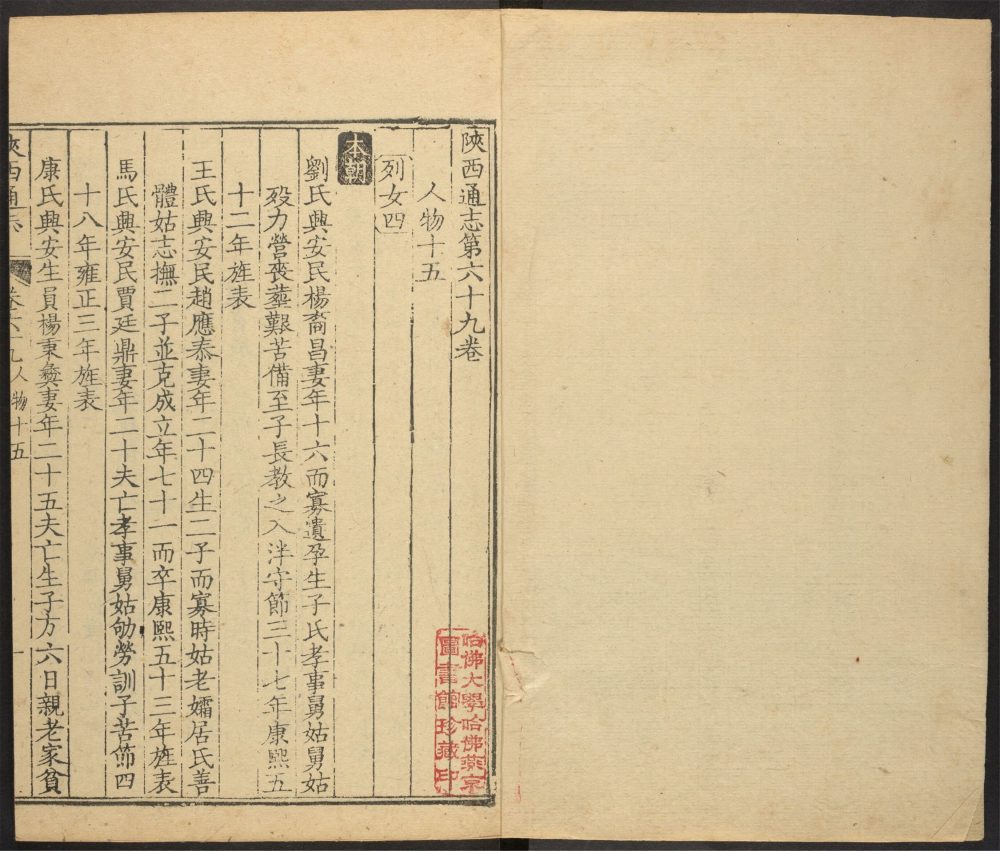 陝西通志第六十九卷
人物十五
列女四
本朝
劉氏興安民楊裔昌妻年十六而寡遺孕生子氏孝事舅姑舅姑
歿力營喪葬艱苦備至子長教之入泮守節三十七年康熙五
十二年旌表
王氏興安民趙應泰妻年二十四生二子而寡時姑老孀居氏善
體姑志撫二子並克成立年七十一而卒康熙五十三年旌表
馬氏興安民賈廷鼎妻年二十夫亡孝事舅姑劬勞訓子苦節四
十八年雍正三年旌表
康氏興安生員楊秉彝妻年二十五夫亡生子方六日親老家貧
陝西通志 卷六十九 人物十五 一
哈佛大學哈佛燕京
圖書館珍藏印